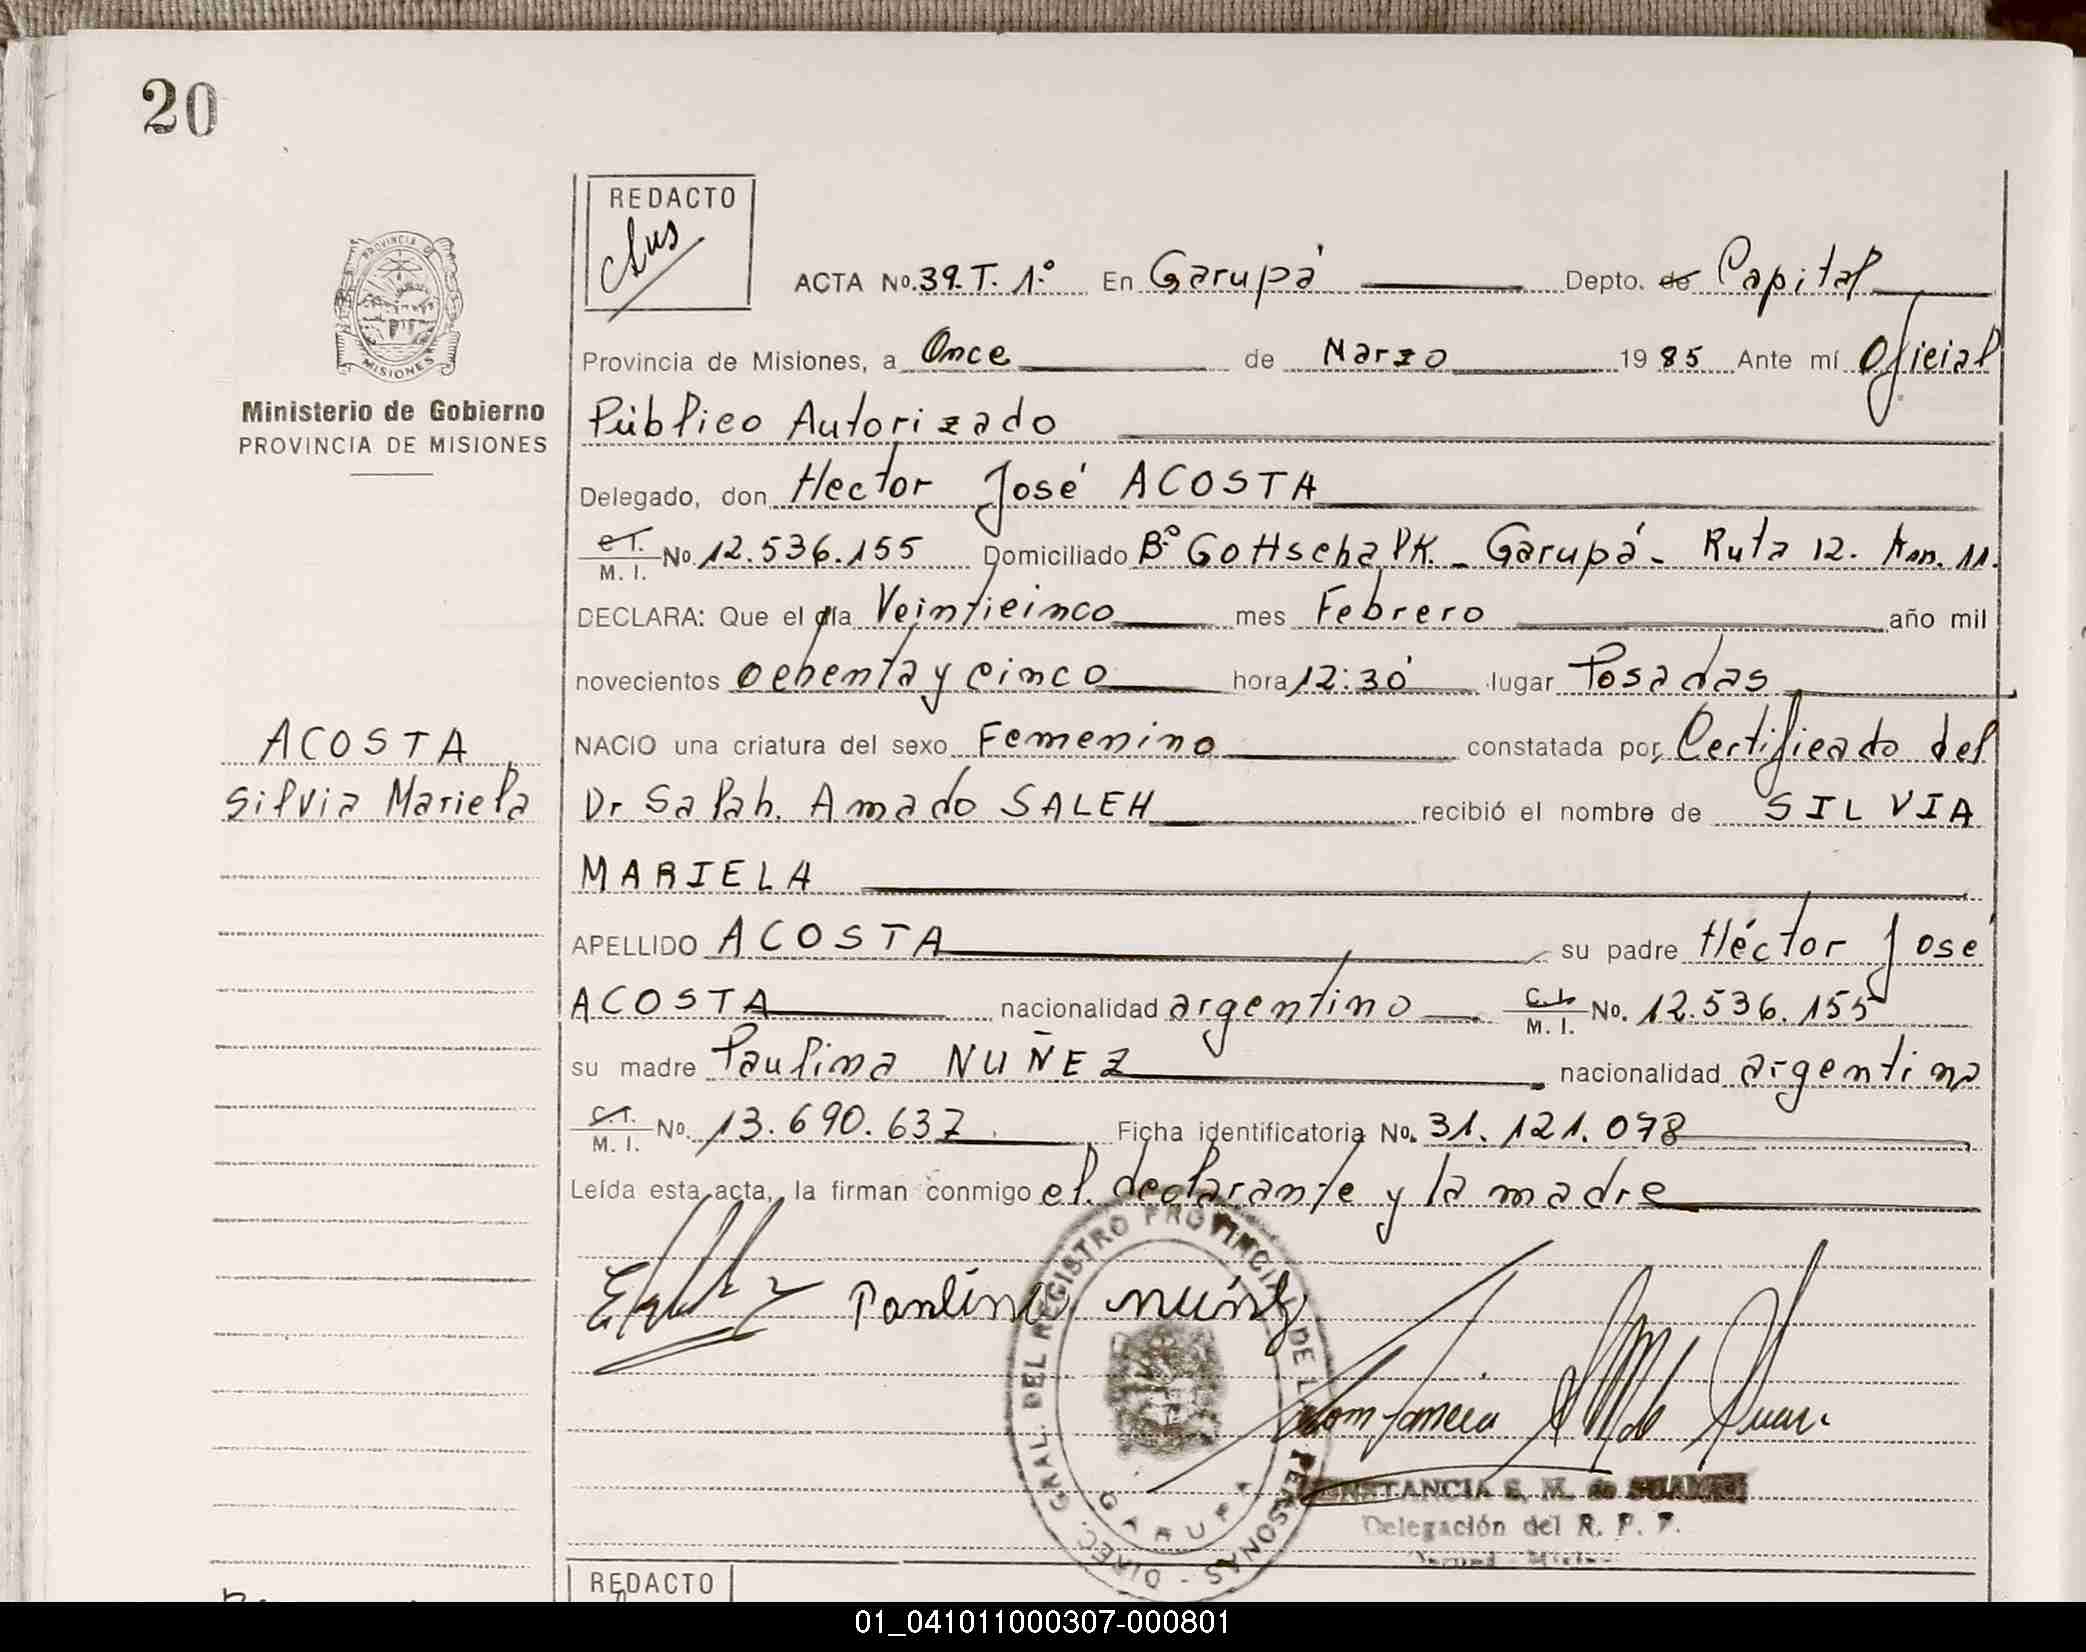 20
REDACTO
PROVINCIA DE
MISIONES
Ministerio de Gobierno
PROVINCIA DE MISIONES
ACTA No. 39. T. 1º En Garupá Depto. de Capital
Provincia de Misiones, a Once de Marzo 1985 Ante mí Oficial
Público Autorizado
Delegado, don Hector José ACOSTA
C.I. M. I. No. 12.536.155 Domiciliado Bº Gottschalk. - Garupá - Ruta 12. Km. 11.
DECLARA: Que el día Veinticinco mes Febrero año mil
novecientos ochenta y cinco hora 12:30 lugar Posadas
NACIO una criatura del sexo Femenino constatada por, Certificado del
ACOSTA
Silvia Mariela
Dr Salah. Amado SALEH recibió el nombre de SILVIA
MARIELA
APELLIDO ACOSTA su padre Héctor José
ACOSTA nacionalidad argentino C.I. M. I. No. 12.536.155
su madre Paulina NUÑEZ nacionalidad argentina
C.I. M. I. No. 13.690.637 Ficha identificatoria No. 31.121.078
Leída esta acta, la firman conmigo el declarante y la madre
Paulina
DIREC. GRAL. DEL REGISTRO PROVINCIAL DE PERSONAS -
GARUPA
CONSTANCIA E. M. de
Delegación del R. P. P.
REDACTO
01_041011000307-000801